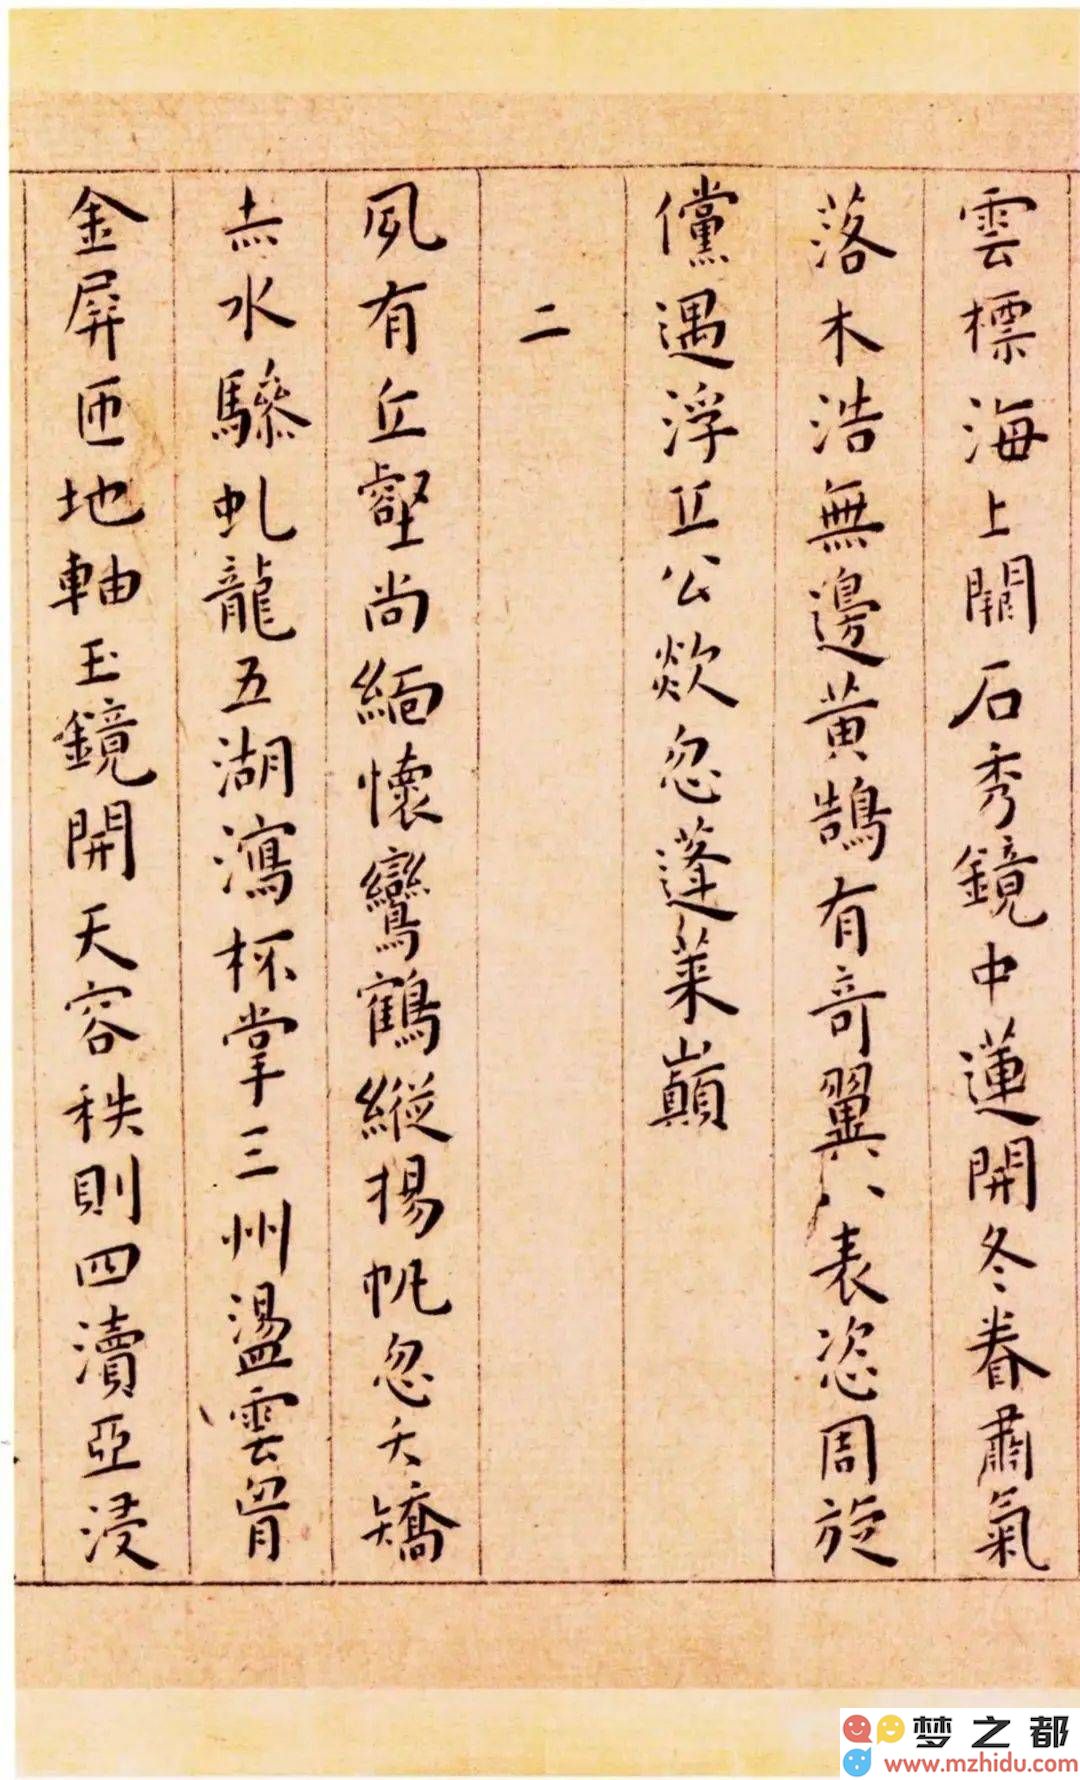 雲標海上關石秀鏡中蓮開冬眷肅氣
落木浩無邊黃鵠有奇翼八表恣周旋
儻遇浮丘公欻忽蓬萊巔
二
夙有丘壑尚緬懷鸞鶴縱揚帆忽夭矯
赤水驂虬龍五湖瀉杯掌三州盪雲胷
金屏匝地軸玉鏡開天容秩則四瀆亞浸
梦之都
www.mzhidu.com